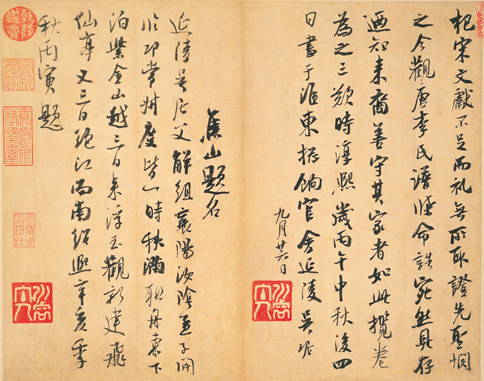 杞宋文獻不足而礼無所取證先聖惆
之今觀唐李氏譜牒命誥宛然具存
逎知来裔善守其家者如此攬卷
為之三歎時淳熙歲丙午中秋後四
日書于淮東摠餉官舍延陵吴琚
九月廿六日
焦山題名
延陵吴居父解組襄陽汝陰孟子開
常州度皆一時秩滿聯舟東下
泊紫金山越三日来浮玉觀新建飛
仙亭又三日絶江而南紹熙辛亥季
秋丙寅題